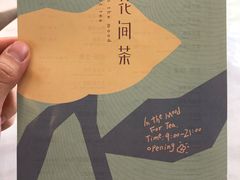 花间茶
In the Mood
For Tea
Time. 9:00-21:00
opening